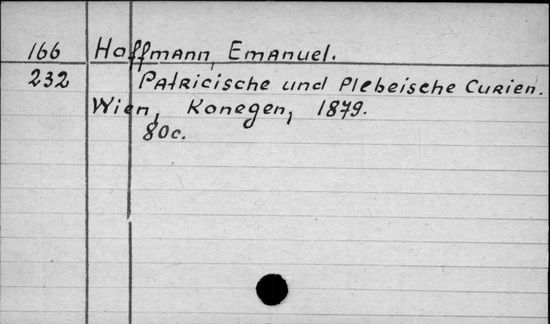 166 Hoffmann, Emanuel.
232 Patricische und Plebeische Curien.
Wien, Konegen, 1879.
80c.